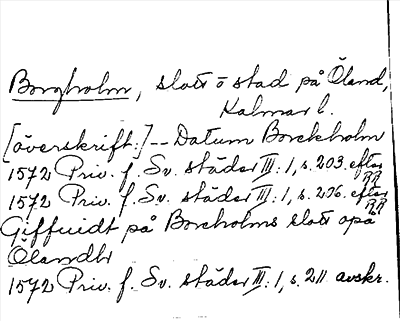 Borgholm, slott o stad på Öland,
Kalmar l.
[överskrift:] -- Datum Borckholm
1572 Priv. f. Sv. städer III: 1, s. 203. efter RR
1572 Priv. f. Sv. städer III: 1, s. 206. efter RR
Giffuidt på Borcholms slott opå
Ölandh
1572 Priv. f. Sv. städer III: 1, s. 211 avskr.